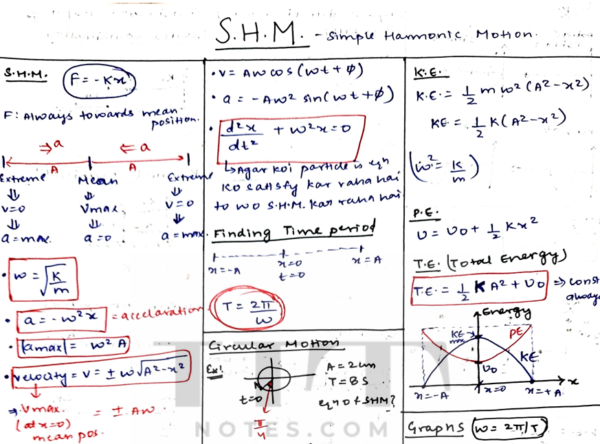 S.H.M. - Simple Harmonic Motion.
S.H.M. F = -Kx
F: Always towards mean position.
⇒a ⇐a
A A
Extreme Mean Extreme
⇓ ⇓ ⇓
v=0 Vmax v=0
⇓ ⇓ ⇓
a=max. a=0 a=max.
• ω = √(K/m)
• a = -ω²x = accelaration
• |amax| = ω²A
• velocity = v = ± ω√(A²-x²)
⇒ Vmax. = ± Aω
(at x=0)
mean pos.
• v = Aω cos(ωt+φ)
• a = -Aω² sin(ωt+φ)
• d²x/dt² + ω²x = 0
↳ Agar koi particle is eqⁿ
ko satisfy kar raha hai
to wo S.H.M. kar raha hai.
Finding Time period
x=-A x=0 x=A
t=0
T = 2π/ω
Circular Motion
Ex: A = 2cm
T = 8S
t=0 eqⁿ of SHM?
π/4
K.E.
K.E. = 1/2 mω²(A²-x²)
KE = 1/2 K(A²-x²)
(ω² = K/m)
P.E.
U = U0 + 1/2 Kx²
T.E. (Total Energy)
T.E. = 1/2 KA² + U0 ⇒ const
always
Energy
KE max PE
KE
U0
x=-A x=0 x=+A x
Graphs (ω = 2π/T)
NOTES.COM